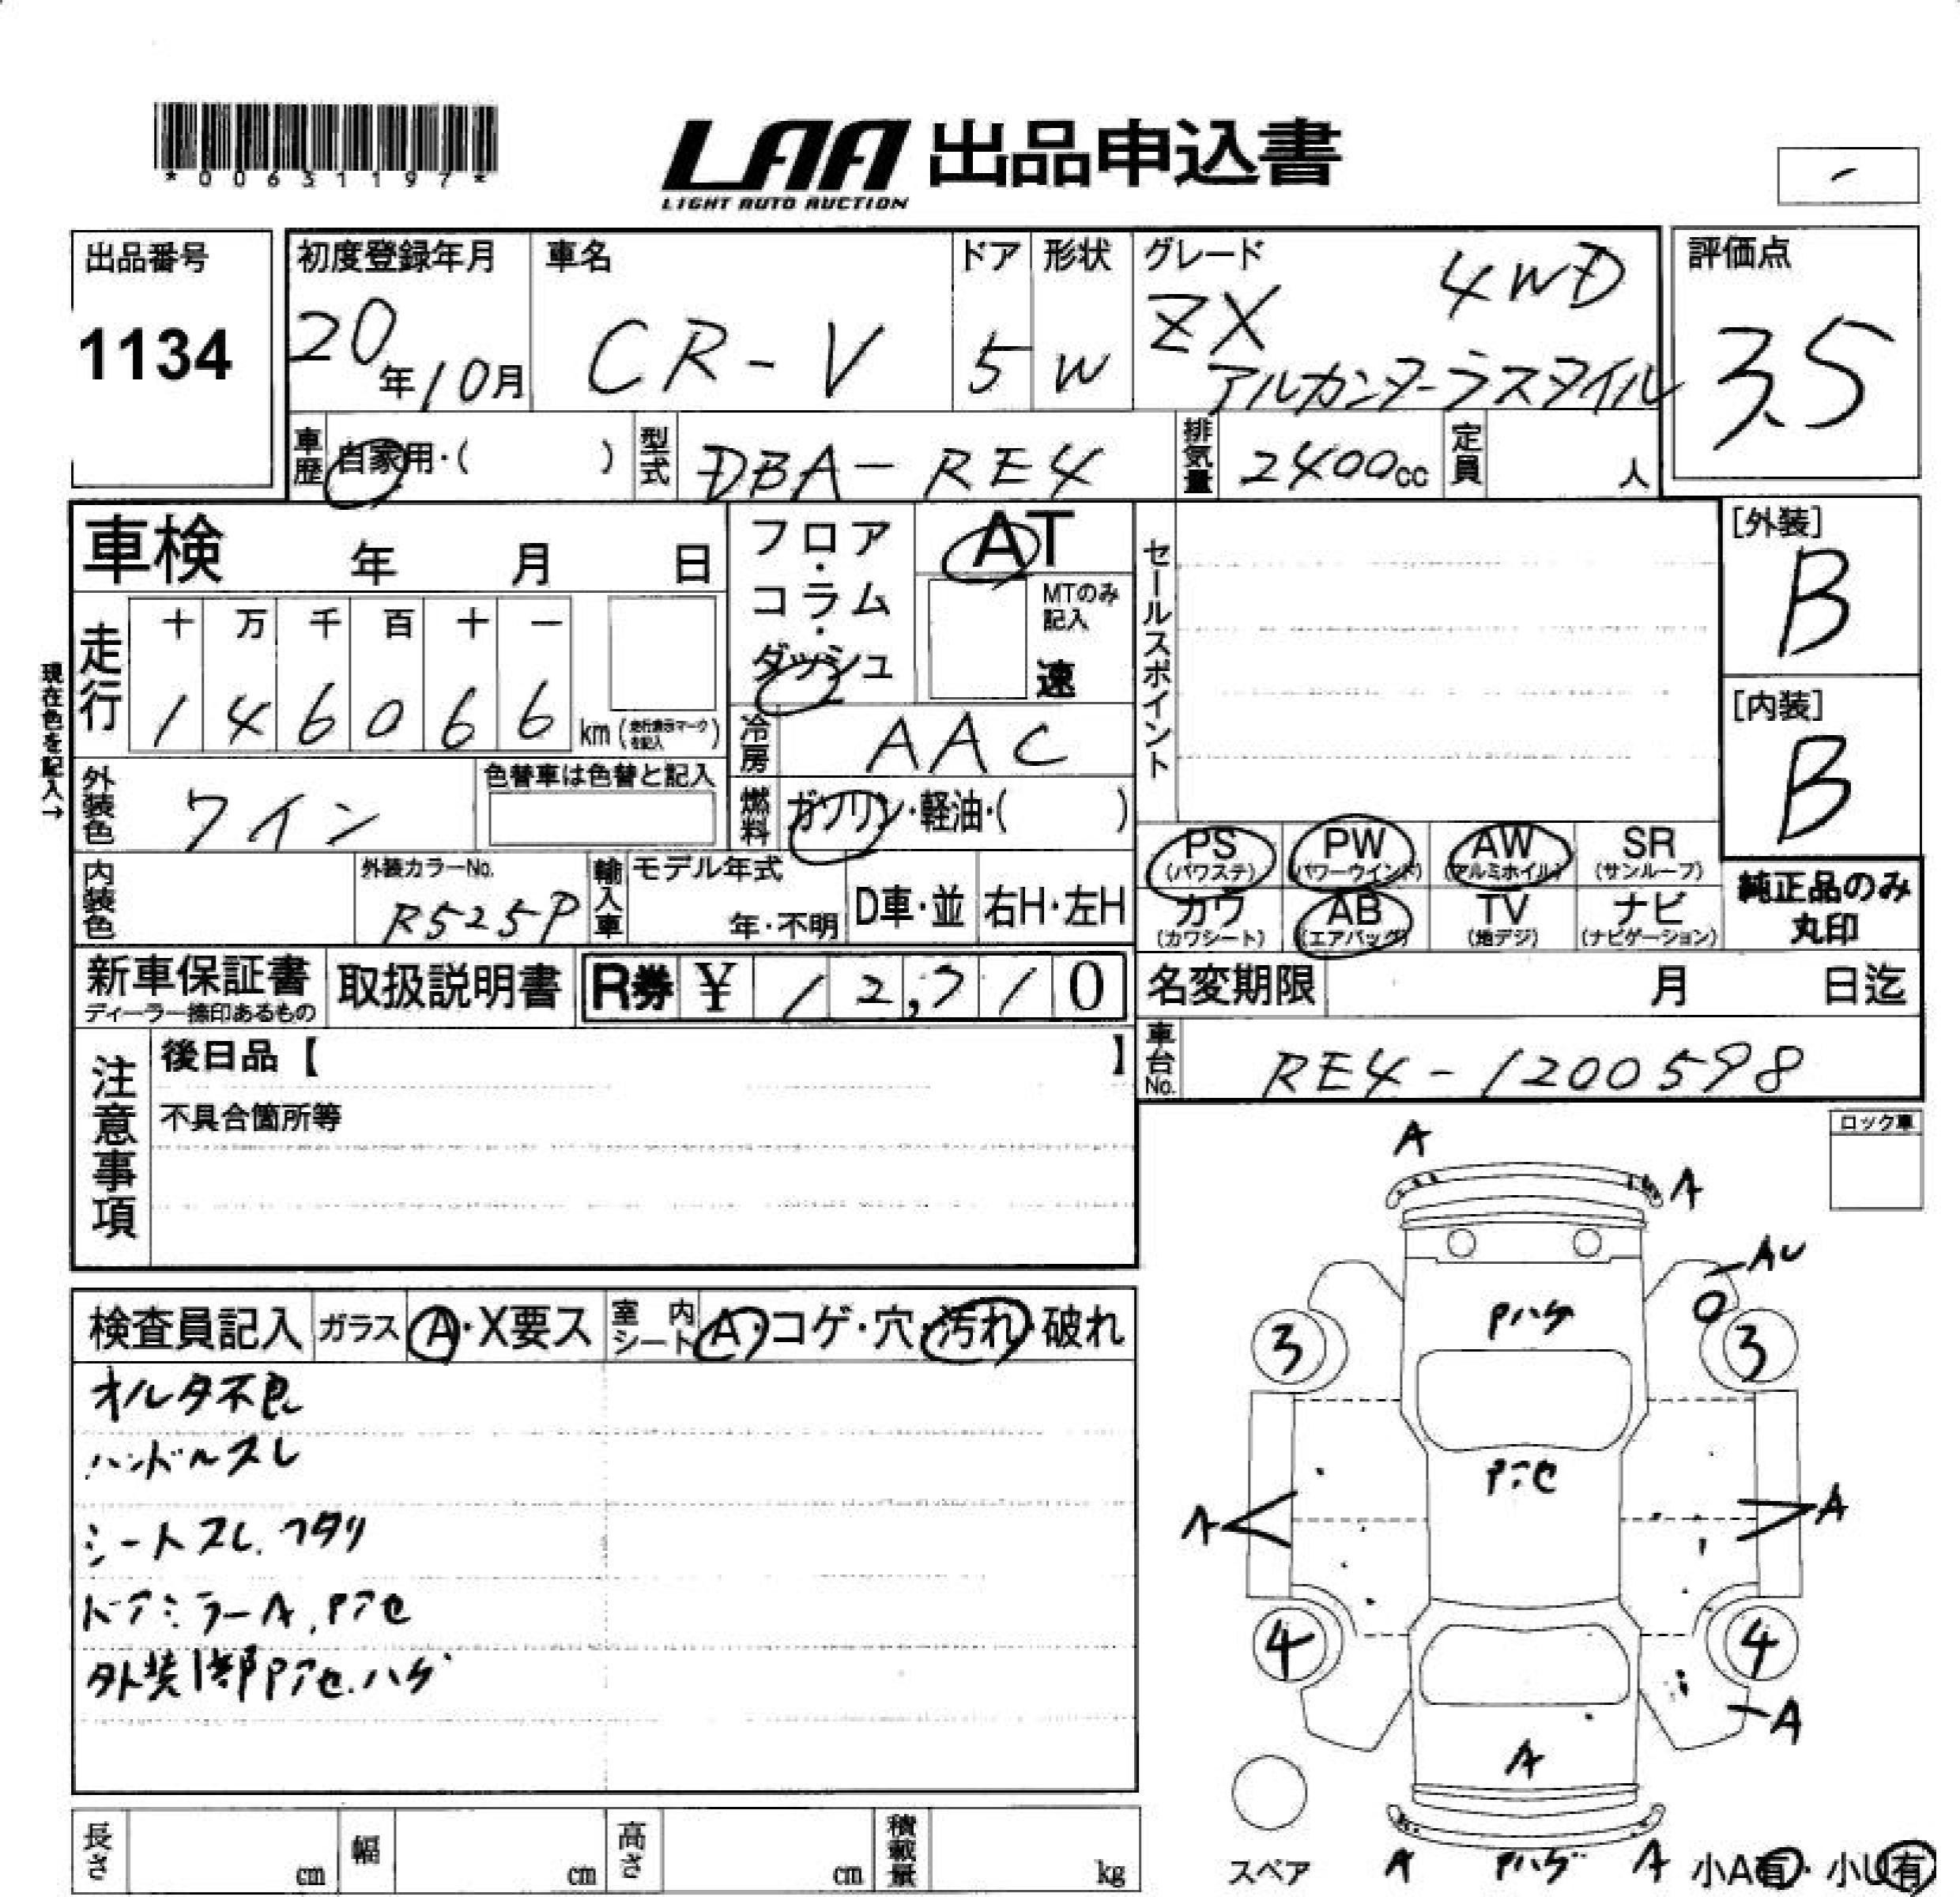 *00631197*
LAA 出品申込書
LIGHT AUTO AUCTION
-
出品番号
1134
初度登録年月
20年10月
車名
CR-V
ドア
5
形状
W
グレード
ZX 4WD
アルカンターラスタイル
評価点
3.5
車歴 自家用・( )
型式 DBA-RE4
排気量 2400cc
定員 人
車検 年 月 日
フロア・コラム・ダッシュ
AT
MTのみ記入
速
セールスポイント
[外装]
B
[内装]
B
現在色を記入→
走行
十 万 千 百 十 一
1 4 6 0 6 6 km
冷房 AAC
外装色 ワイン
色替車は色替と記入
燃料 ガソリン・軽油・( )
PS (パワステ)
PW (パワーウインド)
AW (アルミホイル)
SR (サンルーフ)
カワ (カワシート)
AB (エアバッグ)
TV (地デジ)
ナビ (ナビゲーション)
純正品のみ丸印
内装色
外装カラーNo.
R525P
輸入車
モデル年式
年・不明
D車・並
右H・左H
新車保証書
ディーラー捺印あるもの
取扱説明書
R券 ¥ 12,710
名変期限 月 日迄
車台No. RE4-1200598
注意事項
後日品【 】
不具合箇所等
ロック車
検査員記入 ガラス A・X要ス 室内シート A・コゲ・穴・汚れ・破れ
オルタ不良
ハンドルスレ
シートスレ、ヘタリ
ドアミラーA、Pアセ
外装1部Pアセ、ハゲ
A
A
AU
Pハゲ
3
3
Pアセ
A
A
4
4
A
A
スペア
A Pハゲ A
小A有・小U有
長さ cm
幅 cm
高さ cm
積載量 kg